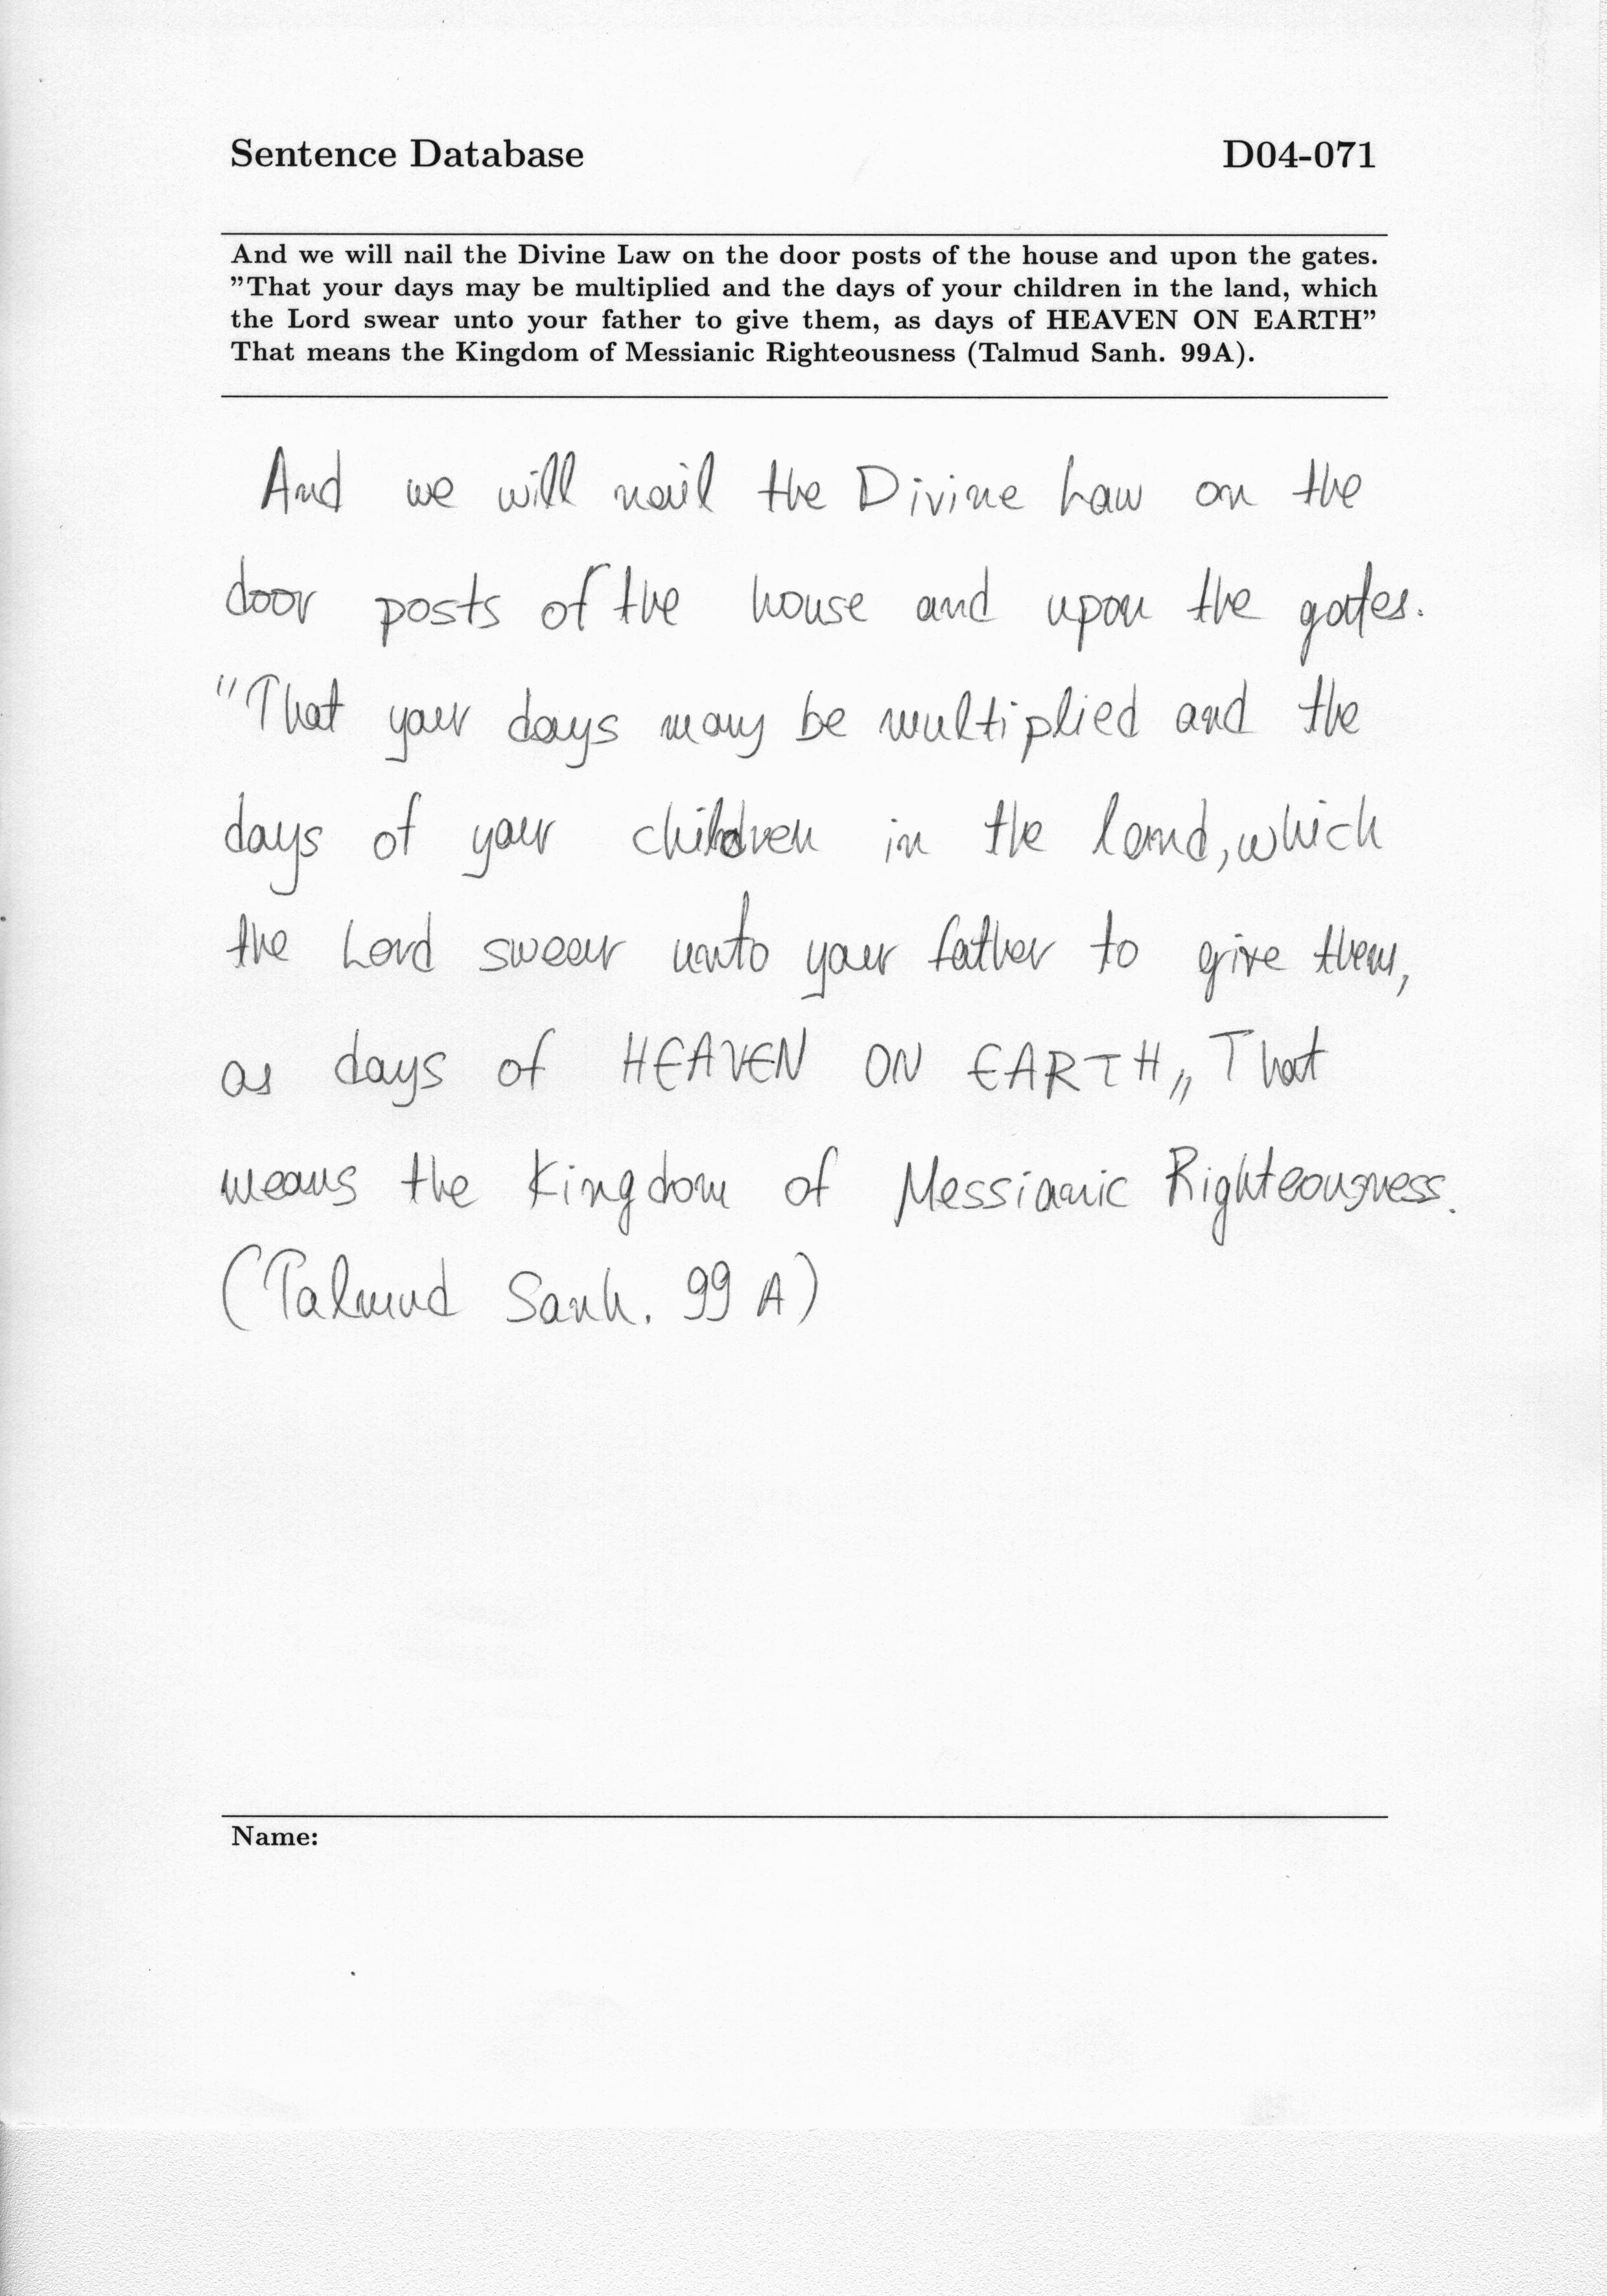 Sentence Database D04-071
And we will nail the Divine Law on the door posts of the house and upon the gates.
"That your days may be multiplied and the days of your children in the land, which
the Lord swear unto your father to give them, as days of HEAVEN ON EARTH"
That means the Kingdom of Messianic Righteousness (Talmud Sanh. 99A).
And we will nail the Divine Law on the
door posts of the house and upon the gates.
"That your days may be multiplied and the
days of your children in the land, which
the Lord swear unto your father to give them,
as days of HEAVEN ON EARTH„ That
means the Kingdom of Messianic Righteousness.
(Talmud Sanh. 99 A)
Name: